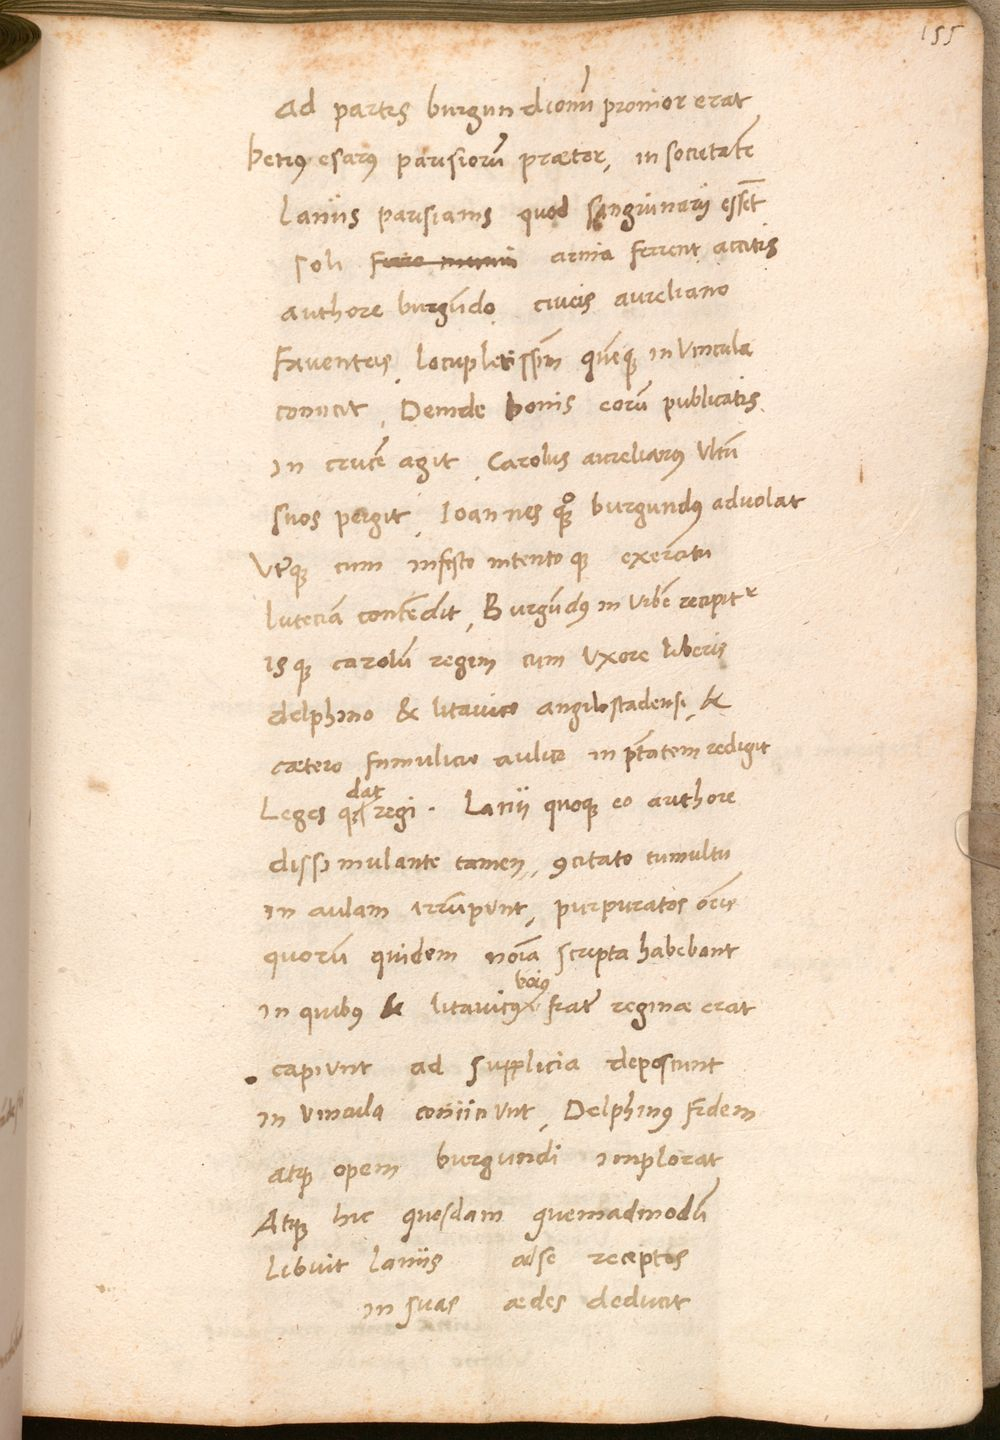 155
ad partes burgundionū pronior erat
betrus esarus parisiorū prætor, in societatē
Laniis parisianis quod sanguinarij essēt
soli ferro muniti arma ferrent accitis
authore burgūdo civeis aureliano
Faventeis, locupletissim quēque in vincula
coniicit, Deinde bonis eorū publicatis
in crucē agit, Carolus aurelianus Ultū
suos pergit, Ioannes quoque burgundus advolat
Uterque cum infesto intentoque exercitu
luteciā contēdit, Burgūdus in urbē recipitr
isque carolū regem cum Uxore liberis
delphino & litavico angilostadensi, &
cætero famulicio aulico in ptātem redigit
Leges que dat regi. Lanij quoque eo authore
dissimulante tamen, 9citato tumultu
in aulam irrūpunt, purpuratos oēis
quorū quidem noīa scripta habebant
in quibus & litavicus boius frater reginæ erat
capiunt ad supplicia deposcunt
in vincula coniiciunt, Delphinus fidem
atque opem burgundi implorat
Atque hic quosdam quemadmodū
libuit laniis a se receptos
in suas ædes deducit